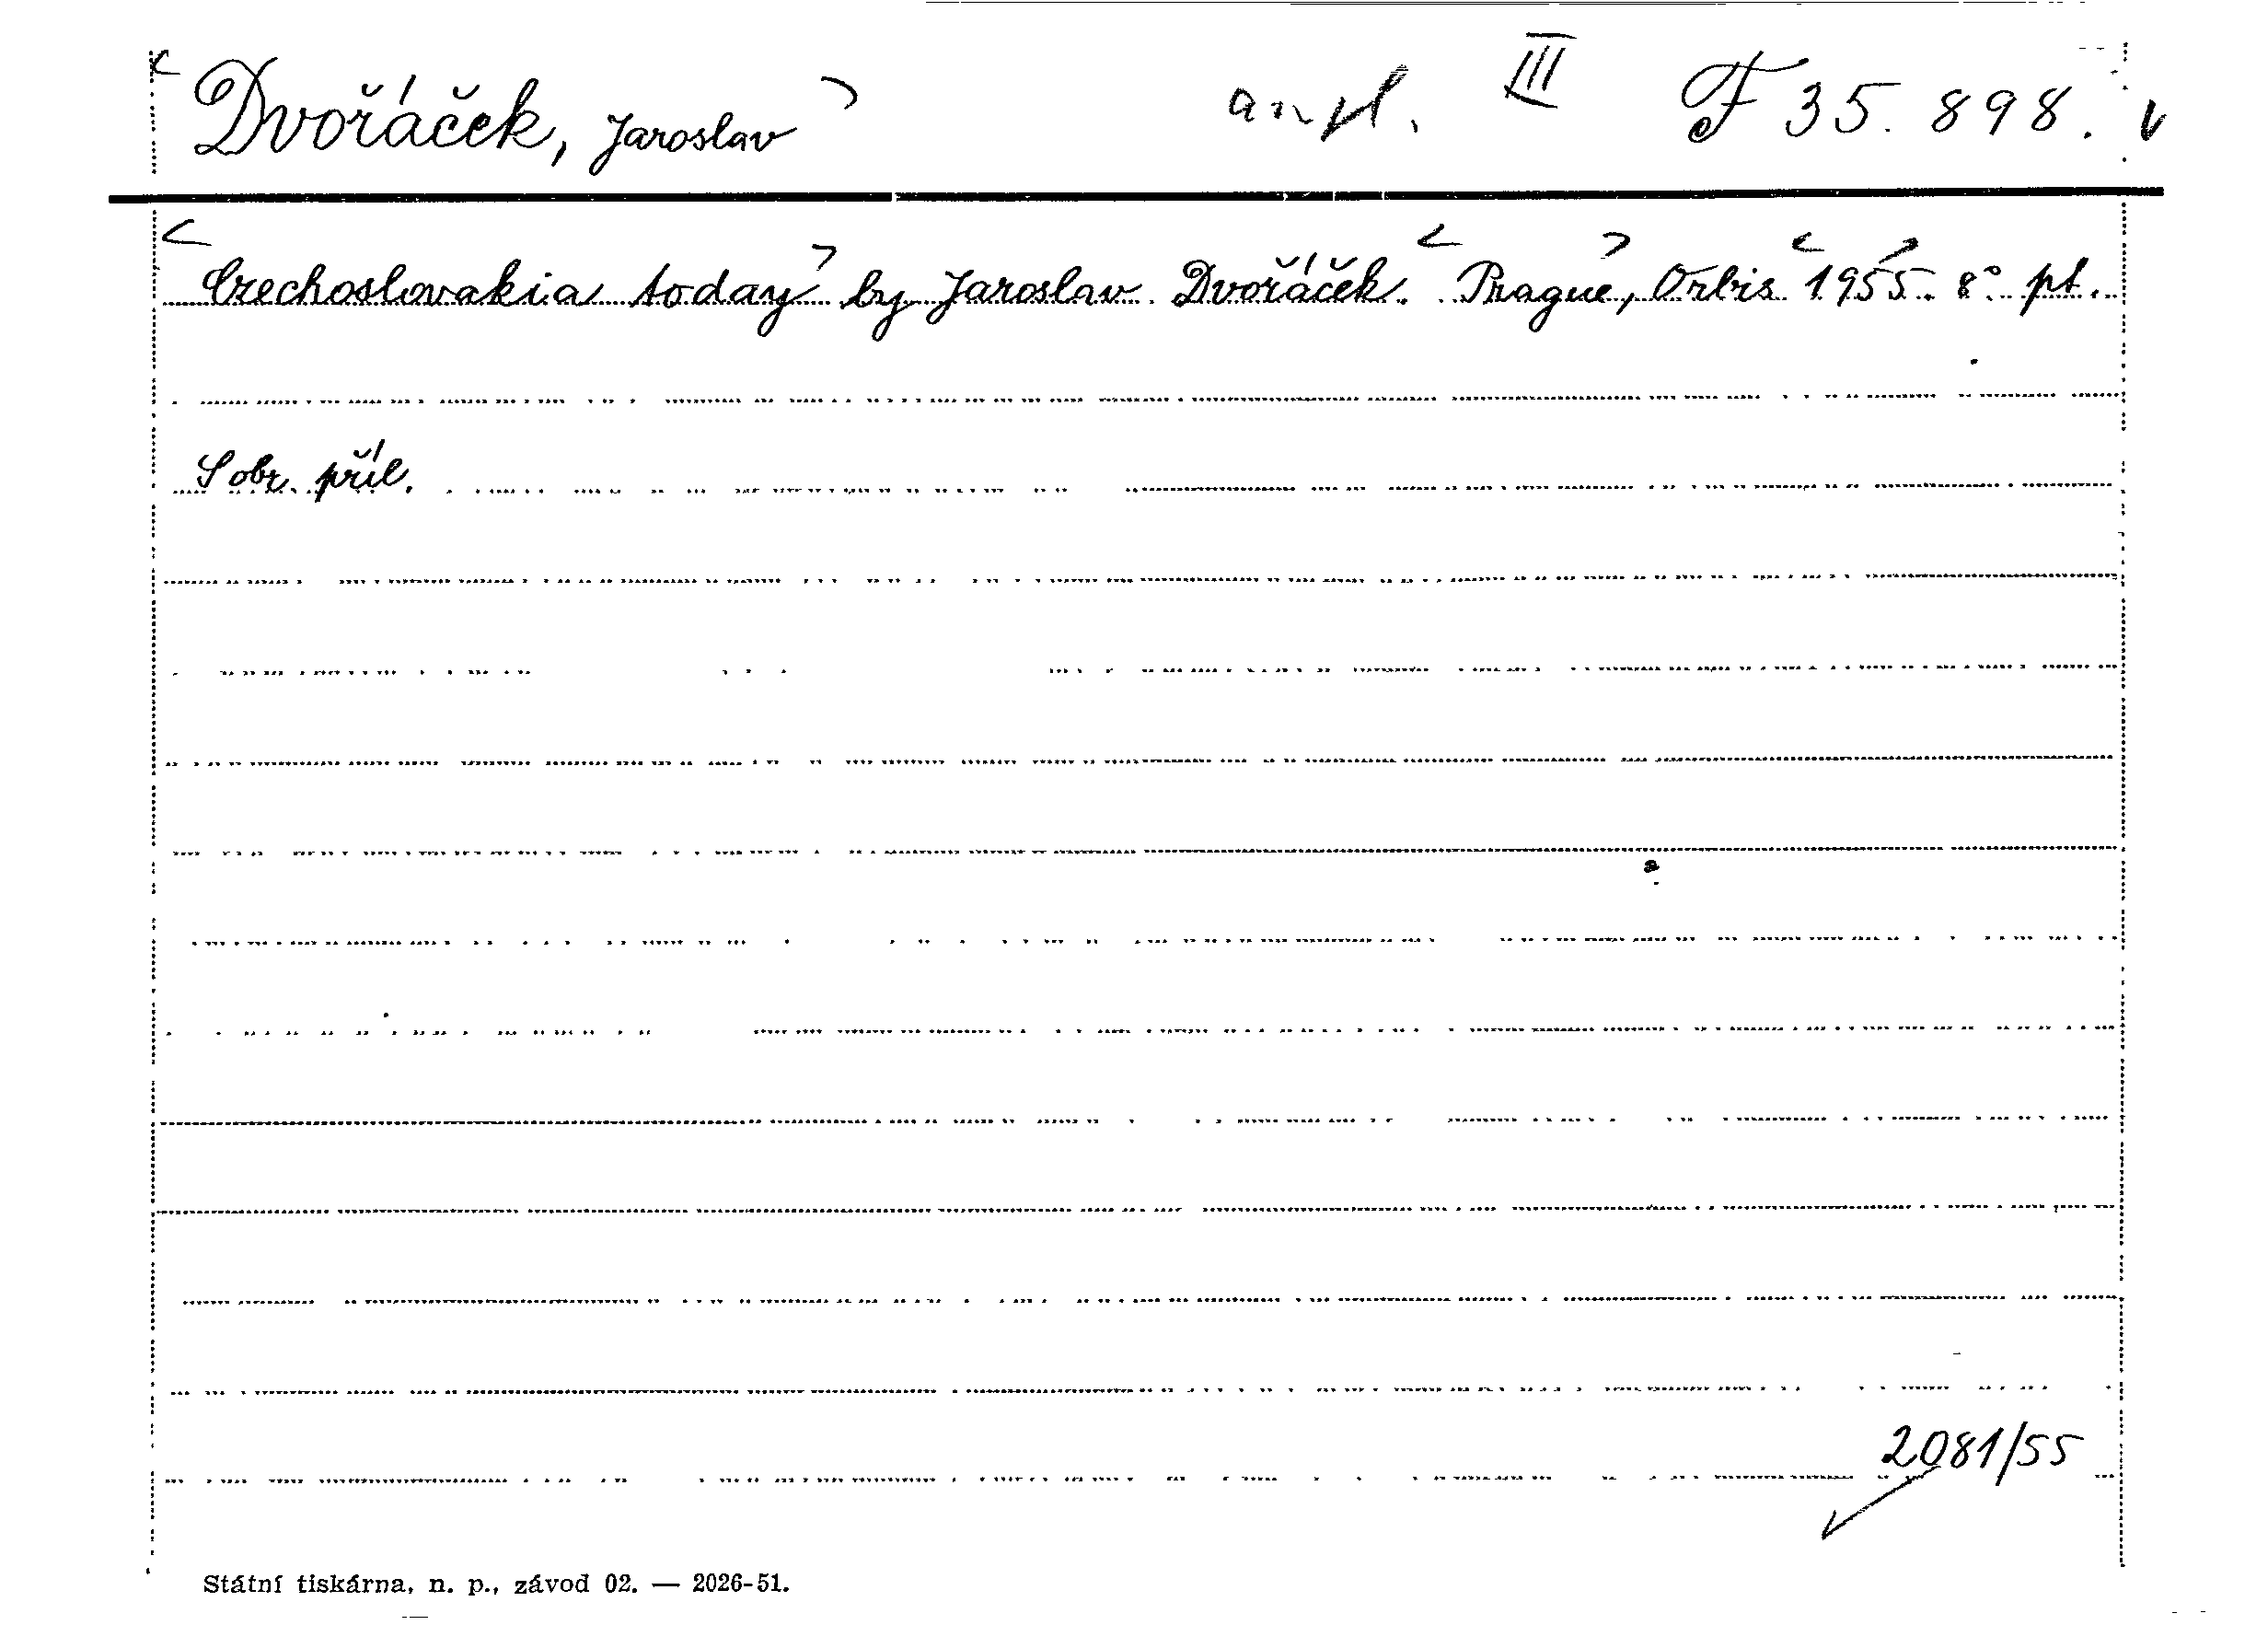 Dvořáček, Jaroslav angl. III F 35.898.
Czechoslovakia today by Jaroslav Dvořáček. Prague, Orbis 1955. 8° pt.
S obr. příl.
2081/55
Státní tiskárna, n. p., závod 02. — 2026-51.